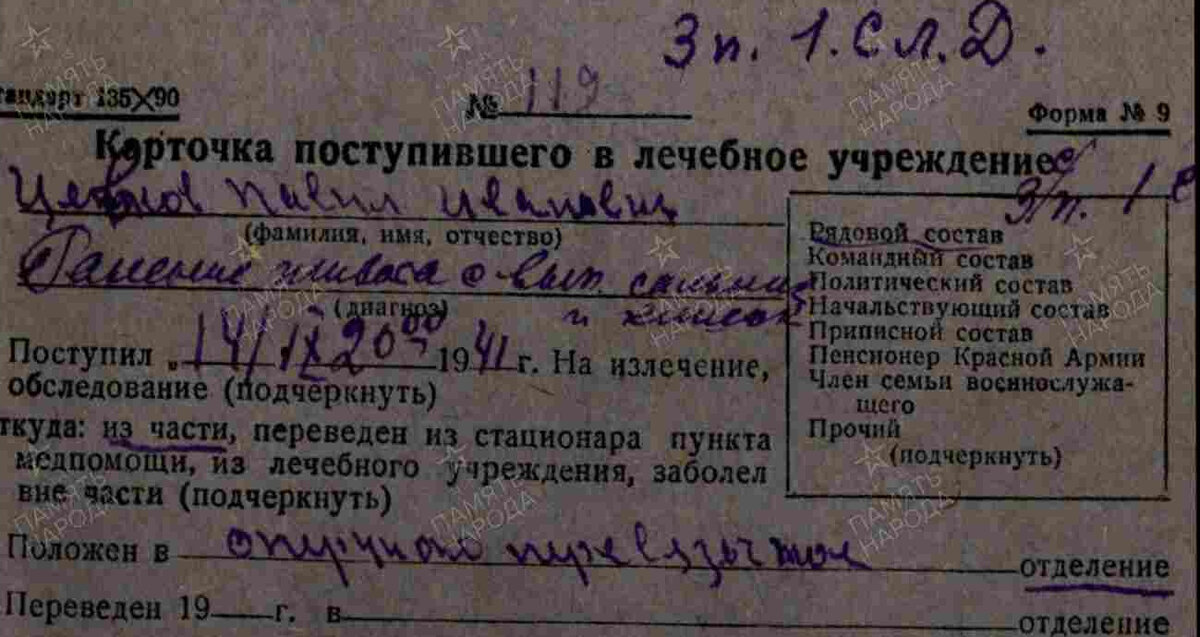 Зп. 1. Сл. Д.
тандарт 135×90
№ 119
Форма № 9
Карточка поступившего в лечебное учреждение
Павел Иванович
З/п. 1
(фамилия, имя, отчество)
Ранение живота с вып. сальника
(диагноз)
и кишок
Поступил „ 14/IX 20⁰⁰ 1941 г. На излечение,
обследование (подчеркнуть)
ткуда: из части, переведен из стационара пункта
медпомощи, из лечебного учреждения, заболел
вне части (подчеркнуть)
Рядовой состав
Командный состав
Политический состав
Начальствующий состав
Приписной состав
Пенсионер Красной Армии
Член семьи военнослужа-
щего
Прочий
(подчеркнуть)
Положен в отделение
Переведен 19 г. в отделение
ПАМЯТЬ НАРОДА